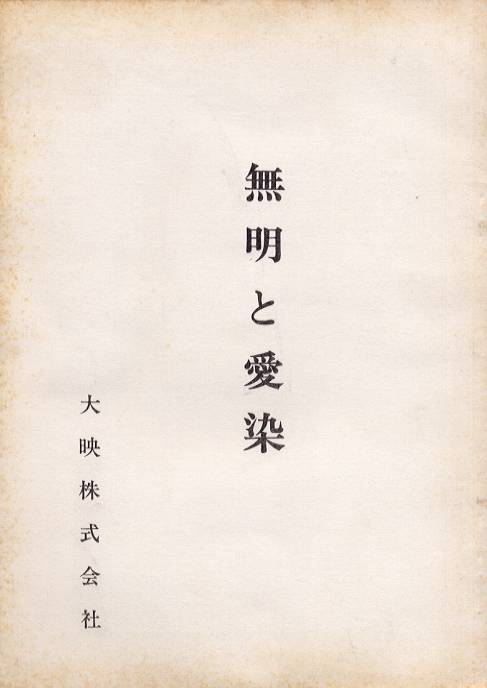 無明と愛染
大映株式会社